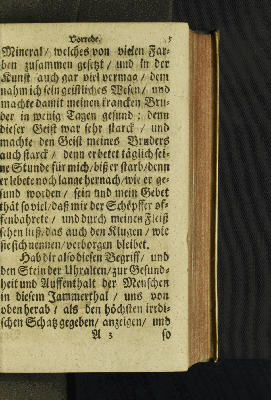 Vorrede. 5
Mineral / welches von vielen Far-
ben zusammen gesetzt / und in der
Kunst auch gar viel vermag / dem
nahm ich sein geistliches Wesen / und
machte damit meinen krancken Bru-
der in wenig Tagen gesund: denn
dieser Geist war sehr starck / und
machte den Geist meines Bruders
auch starck / denn er betet täglich sei-
ne Stunde für mich / biß er starb / denn
er lebete noch lange hernach / wie er ge-
sund worden / sein und mein Gebet
thät so viel / daß mir der Schöpffer of-
fenbahrete / und durch meinen Fleiß
sehen ließ / das auch den Klugen / wie
sie sich nennen / verborgen bleibet.
Hab dir also diesen Begriff / und
den Stein der Uhralten / zur Gesund-
heit und Auffenthalt der Menschen
in diesem Jammerthal / uns von
oben herab / als den höchsten irrdi-
schen Schatz gegeben / anzeigen / und
A 3 so